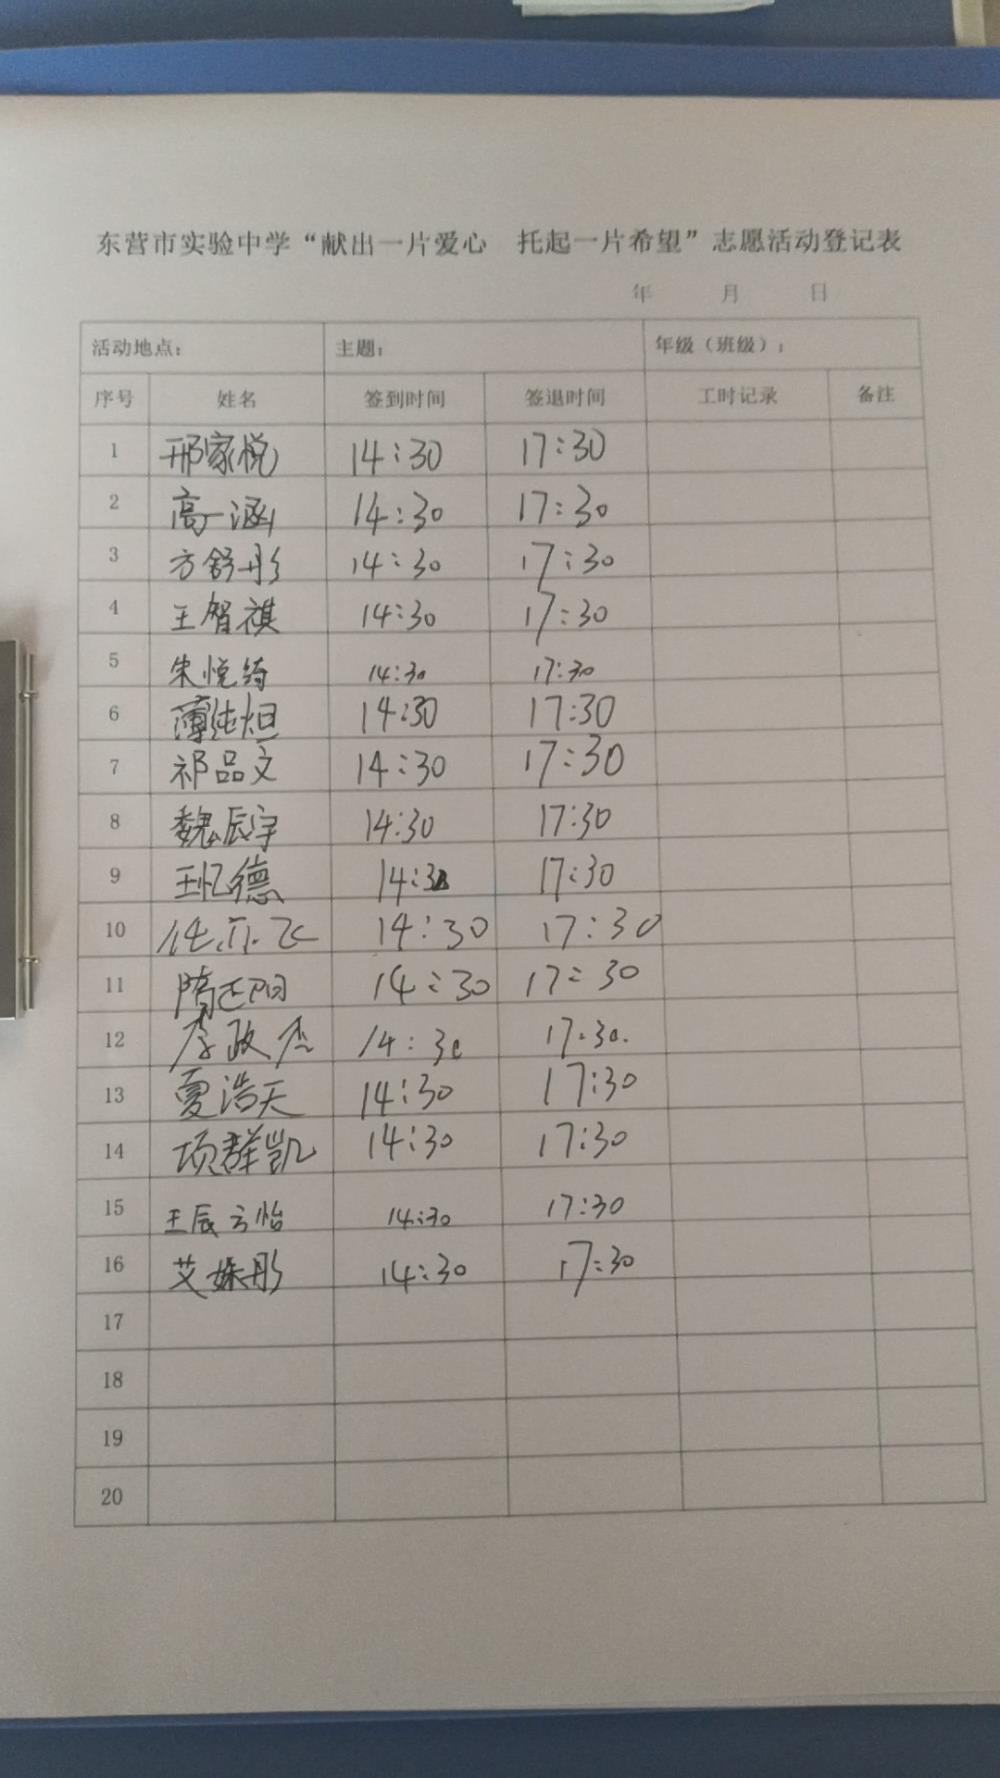 东营市实验中学“献出一片爱心 托起一片希望”志愿活动登记表
年 月 日
活动地点： 主题： 年级（班级）：
序号 姓名 签到时间 签退时间 工时记录 备注
1 邢家悦 14:30 17:30
2 高一涵 14:30 17:30
3 方舒彤 14:30 17:30
4 王智祺 14:30 17:30
5 朱悦绮 14:30 17:30
6 14:30 17:30
7 祁品文 14:30 17:30
8 魏辰宇 14:30 17:30
9 王忆德 14:30 17:30
10 14:30 17:30
11 隋正阳 14:30 17:30
12 李政杰 14:30 17:30.
13 夏浩天 14:30 17:30
14 项群凯 14:30 17:30
15 王辰云怡 14:30 17:30
16 艾姝彤 14:30 17:30
17
18
19
20